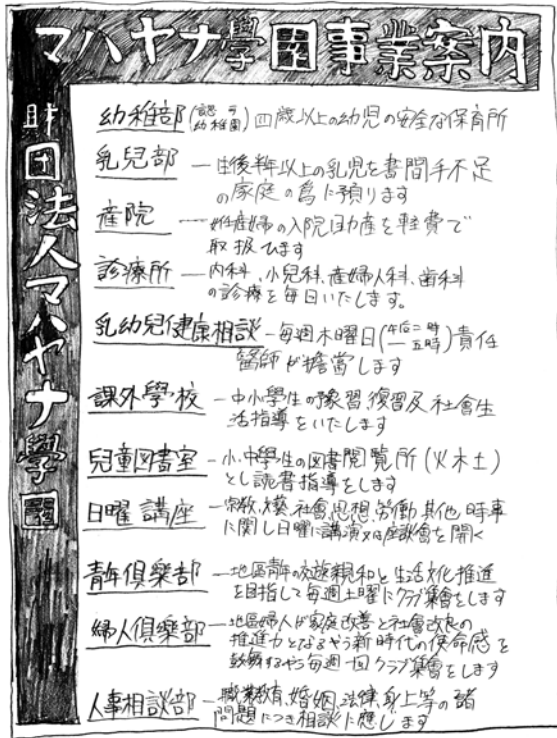 マハヤナ學園事業案内
財団法人マハヤナ學園
幼稚部(認可幼稚園)四歳以上の幼児の安全な保育所
乳児部 ― 生後半年以上の乳児を書間手不足
の家庭の為に預ります
産院 ― 妊産婦の入院助産を軽費で
取扱ひます
診療所 ― 内科、小兒科、産婦人科、歯科
の診療を毎日いたします。
乳幼兒健康相談 ― 毎週木曜日(午后二時―五時)責任
醫師が擔當します
課外學校 ― 中小學生の豫習復習及社會生
活指導をいたします
兒童図書室 ― 小・中學生の図書閲覧所(火木土)
とし読書指導をします
日曜講座 ― 宗教、文藝、社會思想、労働其他時事
に関し日曜に講演又は座談會を開く
青年倶楽部 ― 地區青年の交遊親和と生活文化推進
を目指して毎週土曜にクラブ集會をします
婦人倶楽部 ― 地區婦人が家庭改善と社會改良の
推進力となるやう新時代の使命感を
鼓舞するやう毎週一回クラブ集會をします
人事相談部 ― 職業、教育、婚姻、法律、身上等の諸
問題につき相談に應じます